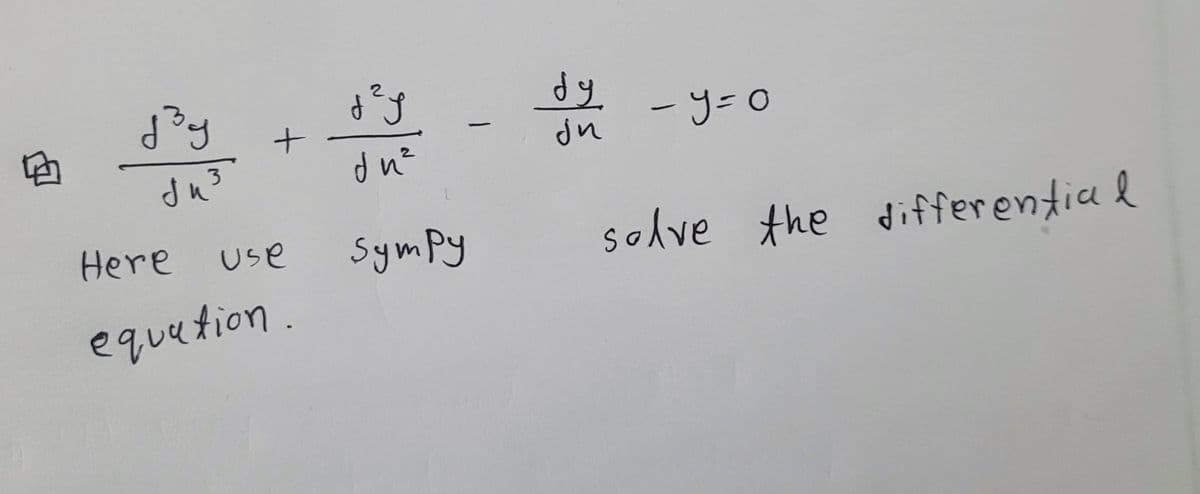 d³y/dn³ + d²y/dn² - dy/dn - y = 0
Here use SymPy solve the differential
equation.